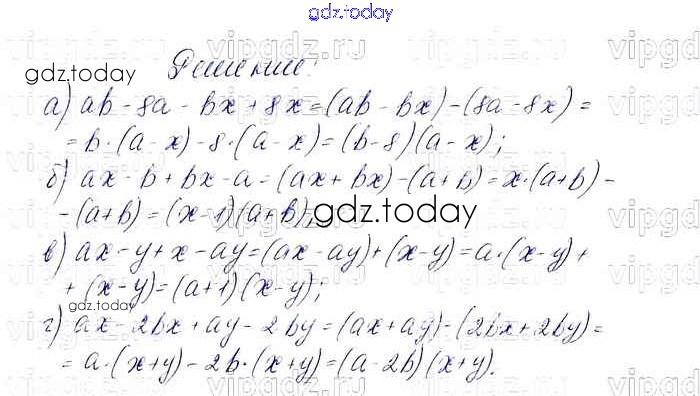 gdz.today
vipgdz.ru
gdz.today
Решение:
а) ab - 8a - bx + 8x = (ab - bx) - (8a - 8x) =
= b·(a - x) - 8·(a - x) = (b - 8)(a - x);
б) ax - b + bx - a = (ax + bx) - (a + b) = x·(a + b) -
- (a + b) = (x - 1)(a + b);
gdz.today
в) ax - y + x - ay = (ax - ay) + (x - y) = a·(x - y) +
+ (x - y) = (a + 1)(x - y);
gdz.today
г) ax - 2bx + ay - 2by = (ax + ay) - (2bx + 2by) =
= a·(x + y) - 2b·(x + y) = (a - 2b)(x + y).